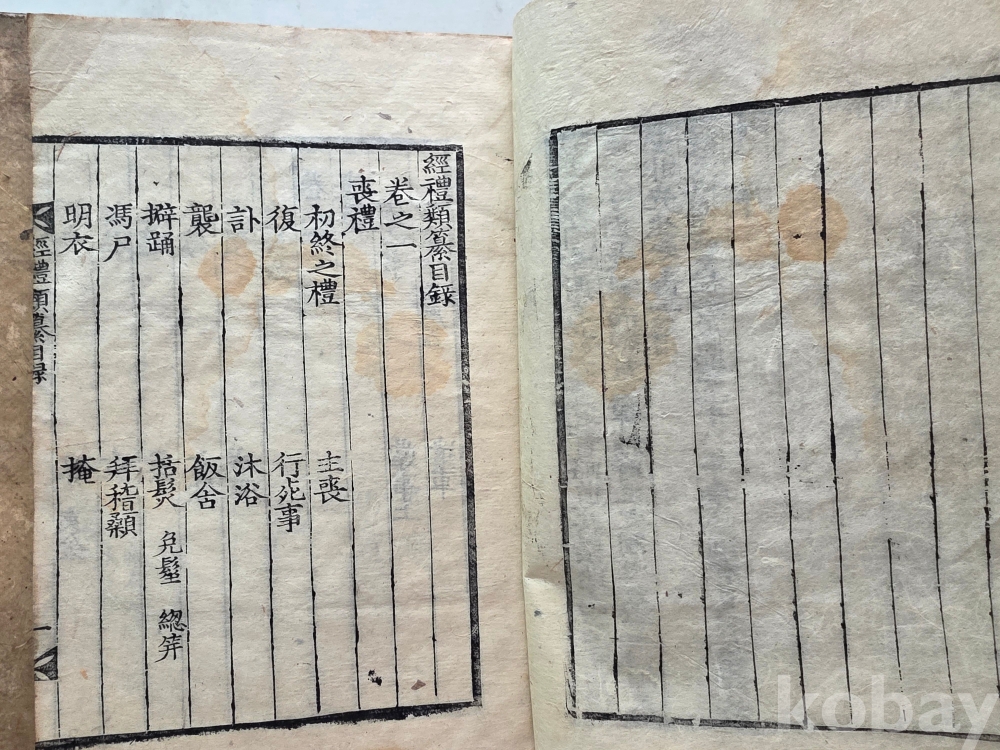 經禮類纂目録
卷之一
喪禮
初終之禮 主喪
復 行死事
訃 沐浴
襲 飯含
擗踊 括髮 免髽 總笄
馮尸 拜稽顙
明衣 掩
經禮類纂目録 一
kobay